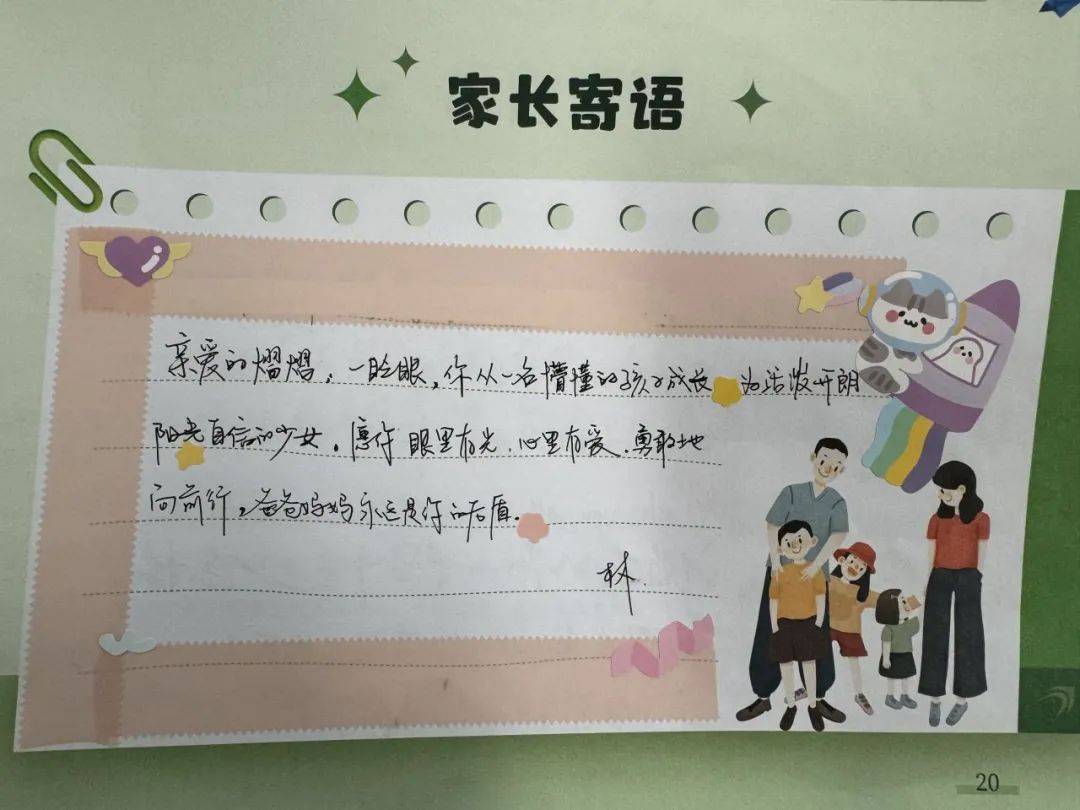 家长寄语
亲爱的熠熠，一眨眼，你从一名懵懂的孩子成长为活泼开朗
阳光自信的少女。愿你眼里有光、心里有爱、勇敢地
向前行，爸爸妈妈永远是你的后盾。
林
20